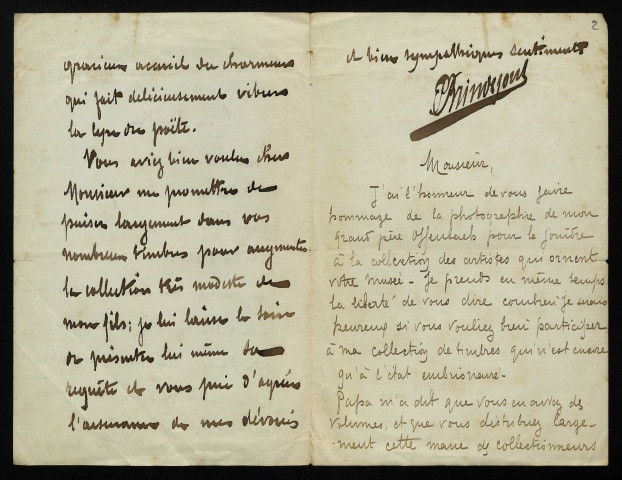 gracieux accueil du charmeur
qui fait délicieusement vibrer
la lyre du poëte.
Vous aviez bien voulu cher
Monsieur me promettre de
puiser largement dans vos
nombreux timbres pour augmenter
la collection très modeste de
mon fils; je lui laisse le soin
de présenter lui même sa
requête et vous prie d'agréer
l'assurance de mes dévoués
2
et bien sympathiques sentiments
Monsieur,
J'ai l'honneur de vous faire
hommage de la photographie de mon
grand père Offenbach pour la joindre
à la collection des artistes qui ornent
votre musée - Je prends en même temps
la liberté de vous dire combien je serais
heureux si vous vouliez bien participer
à ma collection de timbres qui n'est encore
qu'à l'état embrionnaire -
Papa m'a dit que vous en aviez des
volumes, et que vous distribuez large-
-ment cette mane de collectionneurs